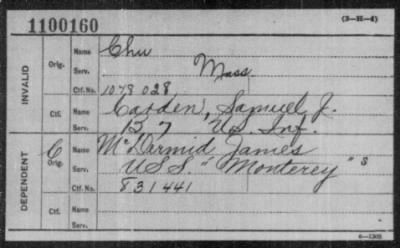 1100160
(3-H-4)
INVALID
Orig.
Name Chu
Serv. Mass.
Ctf. No. 1078 028
Ctf.
Name Carden, Samuel J.
Serv. B 7 US. Inf.
DEPENDENT
C Orig.
Name McDarmid James
Serv. U.S.S. "Monterey" s
Ctf. No. 831441
Ctf.
Name
Serv.